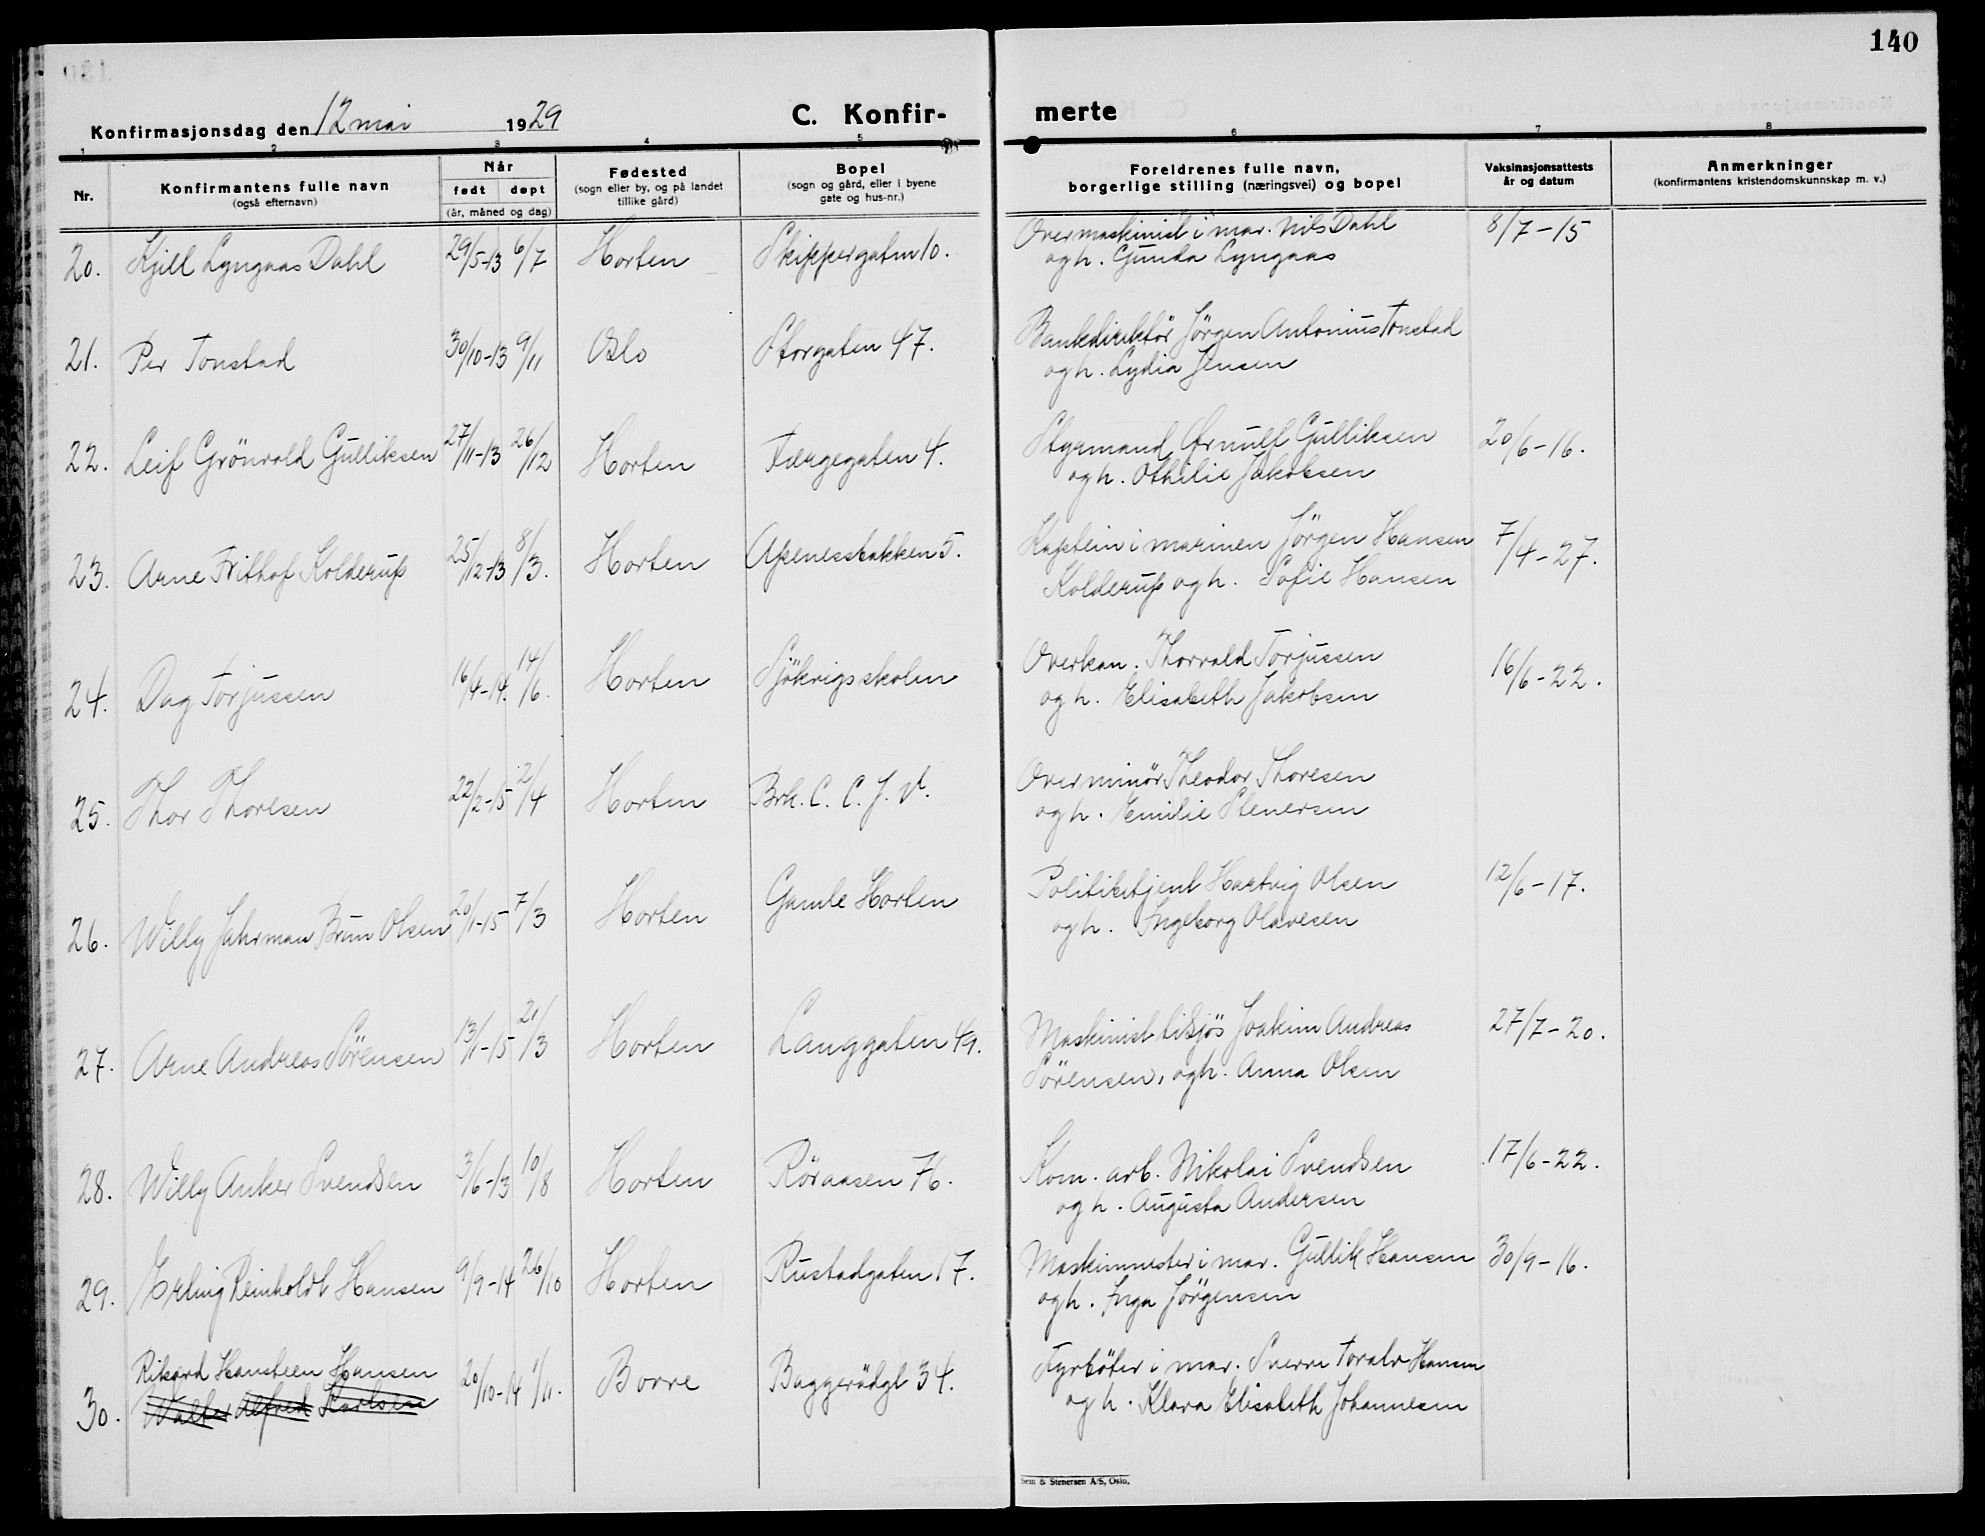 140
Konfirmasjonsdag den 12 mai 1929
C. Konfir-
merte
1 2 3 4 5 6 7 8
Nr.
Konfirmantens fulle navn
(også efternavn)
Når
født døpt
(år, måned og dag)
Fødested
(sogn eller by, og på landet
tillike gård)
Bopel
(sogn og gård, eller i byene
gate og hus-nr.)
Foreldrenes fulle navn,
borgerlige stilling (næringsvei) og bopel
Vaksinasjonsattests
år og datum
Anmerkninger
(konfirmantens kristendomskunnskap m. v.)
20. Kjell Lyngaas Dahl 29/5-13 6/7 Horten Skippergaten 10. Overmaskinist i mar. Nils Dahl 8/7-15
og h. Gunda Lyngaas
21. Per Tonstad 30/10-13 9/11 Oslo Storgaten 47. Bankdirektör Jörgen Antonius Tonstad
og h. Lydia Jensen
22. Leif Grönvold Gulliksen 27/11-13 26/12 Horten Færgegaten 4. Styrmand Ørnulf Gulliksen 20/6-16.
og h. Othilie Jakobsen
23. Arne Frithof Kolderup 25/12-13 8/3. Horten Apenesbakken 5. Kaptein i marinen Jörgen Hansen 7/4-27.
Kolderup og h. Sofie Hansen
24. Dag Torjussen 16/4-14. 14/6. Horten Sjökrigsskolen Overkan. Thorvald Torjussen 16/6-22.
og h. Elisabeth Jakobsen
25. Thor Thoresen 22/2-15 2/4 Horten Brk. C. C. J. V. Overminör Theodor Thoresen
og h. Emilie Stenersen
26. Willy Jahrman Brun Olsen 20/1-15 7/3 Horten Gamle Horten Politibetjent Hartvig Olsen 12/6-17.
og h. Ingeborg Olavesen
27. Arne Andreas Sörensen 13/1-15 21/3 Horten Langgaten 49. Maskinist tilsjös Joakim Andreas 27/7-20.
Sörensen, og h. Anna Olsen
28. Willy Anker Svendsen 3/6-13 10/8 Horten Röraasen 76. Kom. arb. Nikolai Svendsen 17/6-22.
og h. Augusta Andersen
29. Erling Reinholdt Hansen 9/9-14 26/10 Horten Rustadgaten 17. Maskinmester i mar. Gullik Hansen 30/9-16.
og h. Inga Jörgensen
Rikard Hansteen Hansen
30. Walter Alfred Karlsen 20/10-14 1/11. Borre Baggerödgt 34. Fyrböter i mar. Sverre Toralv Hansen
og h. Klara Elisabeth Johannesen
Sem & Stenersen A/S, Oslo.